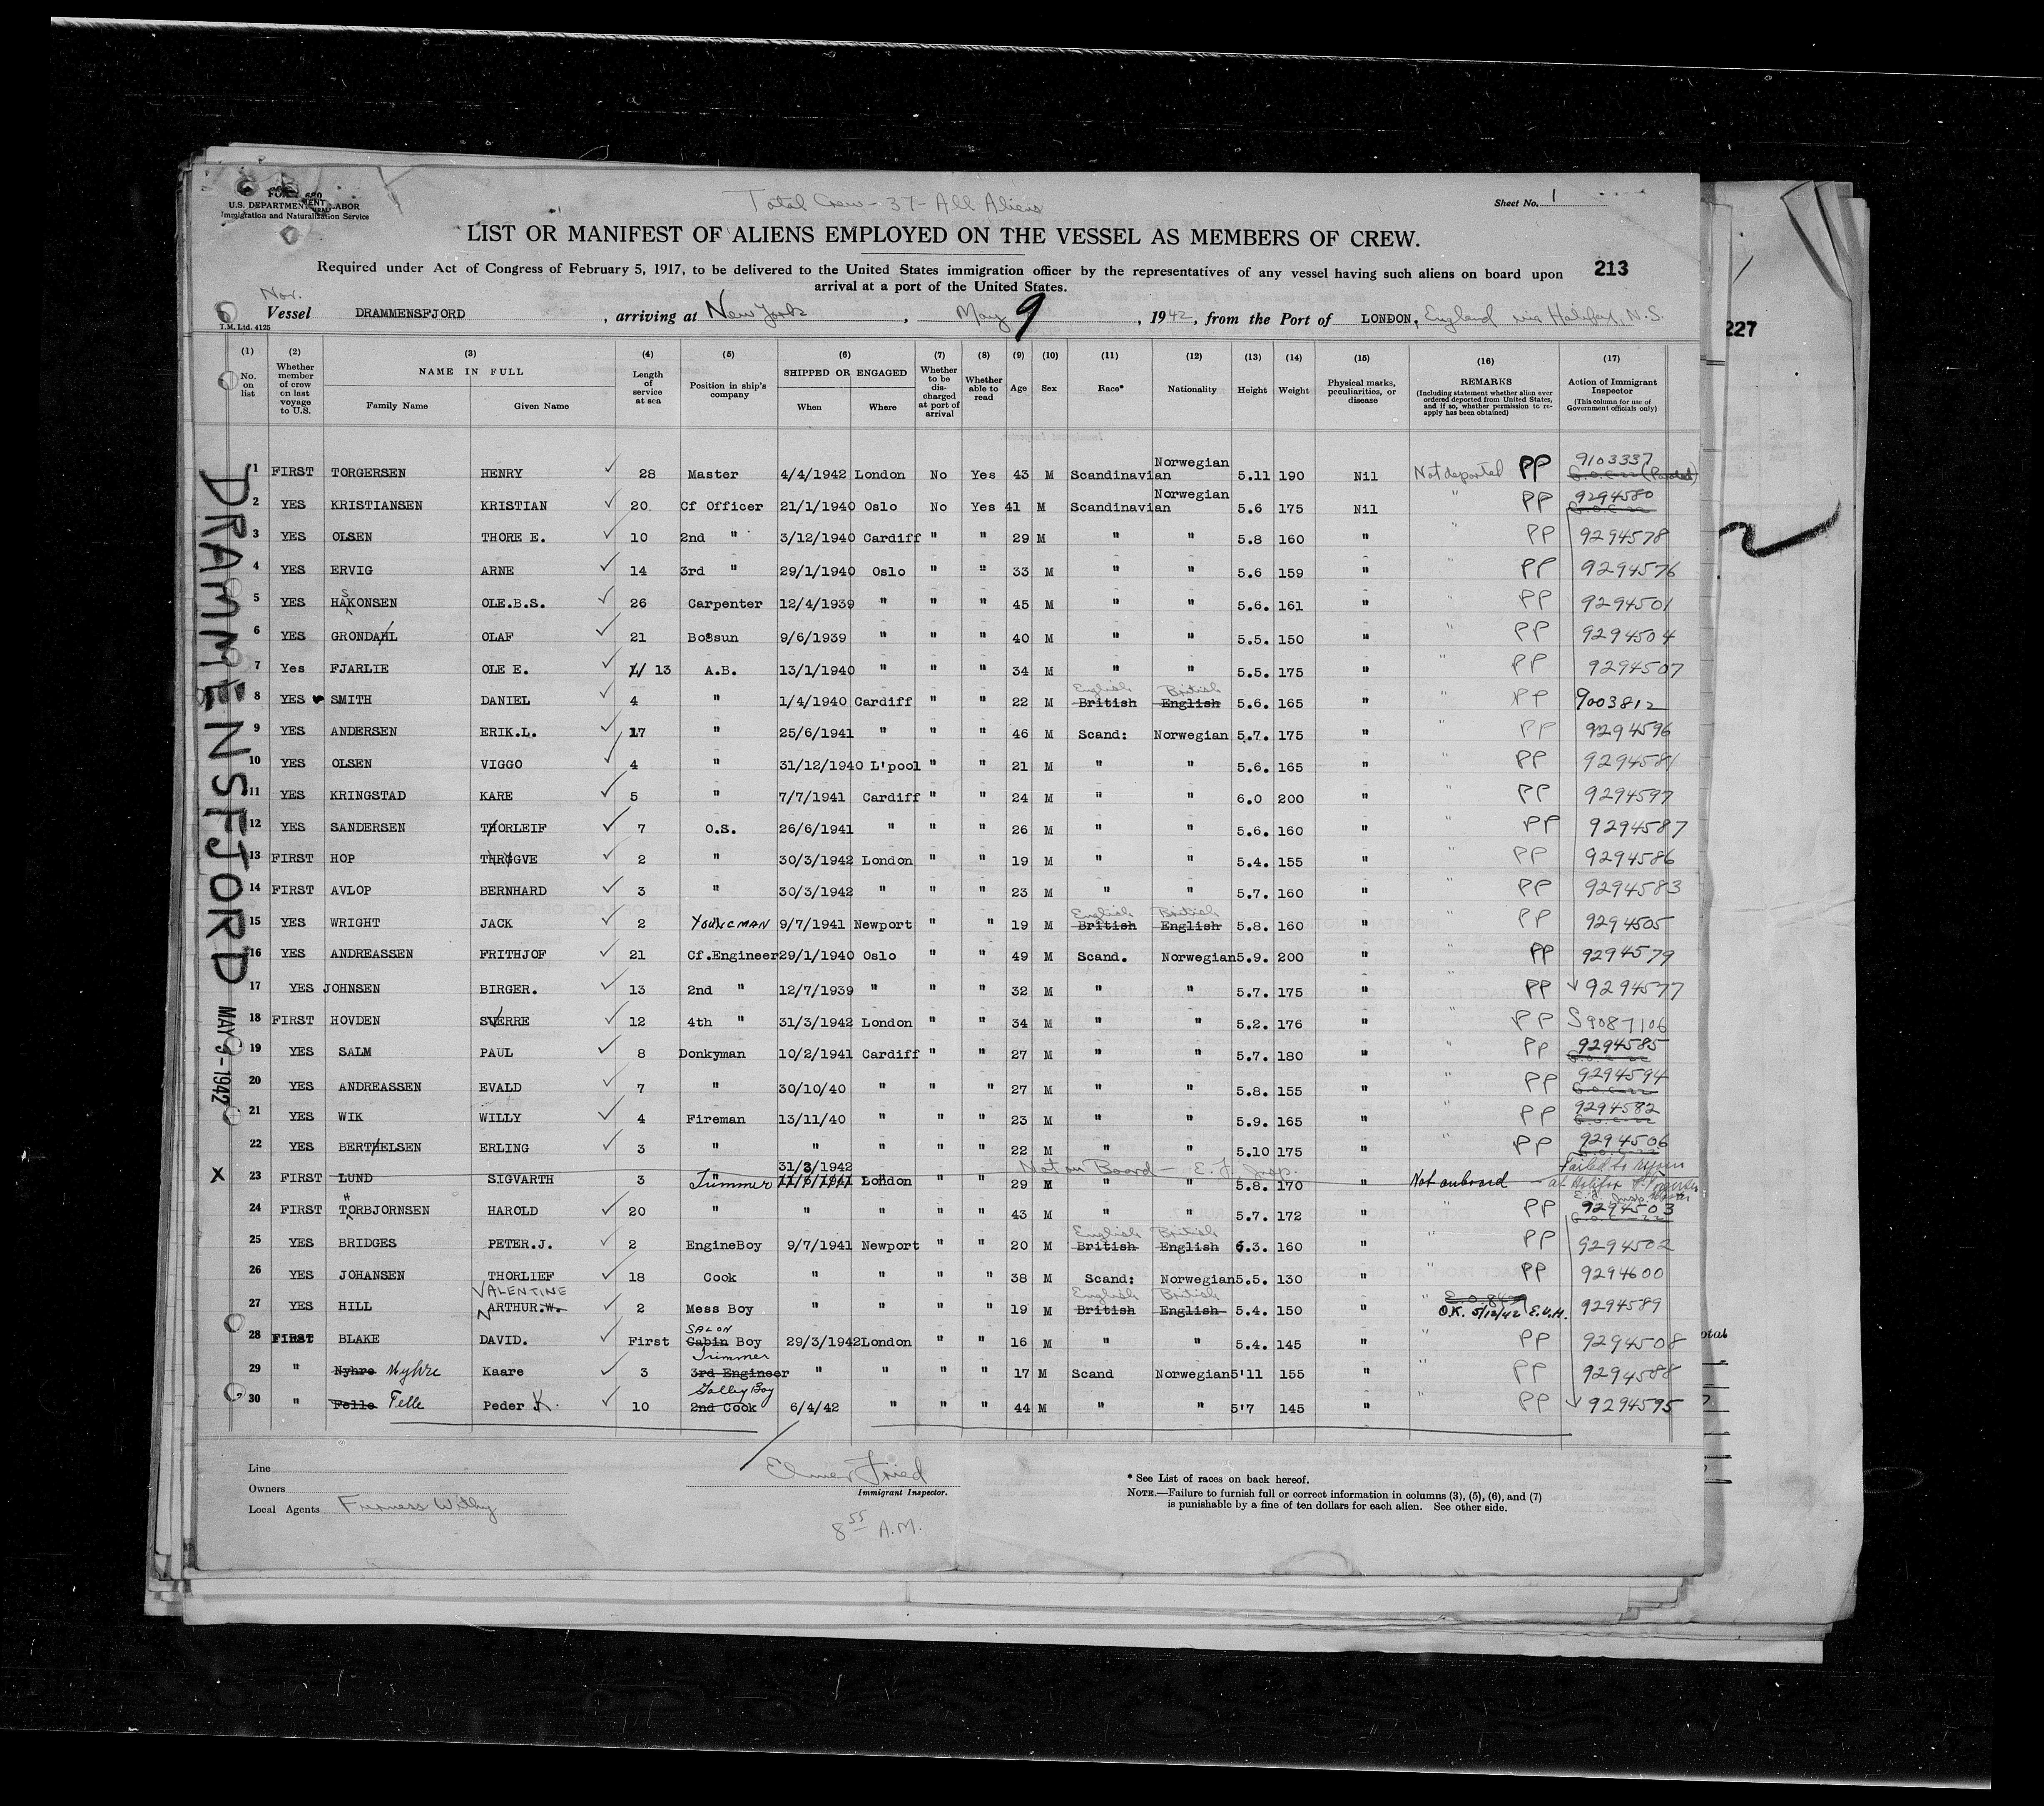 Total Crew - 37 - All Aliens
Sheet No. 1
U.S. DEPARTMENT LABOR
Immigration and Naturalization Service
LIST OR MANIFEST OF ALIENS EMPLOYED ON THE VESSEL AS MEMBERS OF CREW.
213
Required under Act of Congress of February 5, 1917, to be delivered to the United States immigration officer by the representatives of any vessel having such aliens on board upon
arrival at a port of the United States.
Nor.
Vessel DRAMMENSFJORD, arriving at New York, May 9, 1942, from the Port of LONDON, England via Halifax, N.S.
T.M. Ltd. 4125
227
(1) (2) (3) (4) (5) (6) (7) (8) (9) (10) (11) (12) (13) (14) (15) (16) (17)
No. on list
Whether member of crew on last voyage to U.S.
NAME IN FULL
Family Name Given Name
Length of service at sea
Position in ship's company
SHIPPED OR ENGAGED
When Where
Whether to be discharged at port of arrival
Whether able to read
Age Sex Race* Nationality Height Weight
Physical marks, peculiarities, or disease
REMARKS
(Including statement whether alien ever ordered deported from United States, and if so, whether permission to re-apply has been obtained)
Action of Immigrant Inspector
(This column for use of Government officials only)
1 FIRST TORGERSEN HENRY 28 Master 4/4/1942 London No Yes 43 M Scandinavian Norwegian 5.11 190 Nil Not deported PP 9103337
2 YES KRISTIANSEN KRISTIAN 20 Cf Officer 21/1/1940 Oslo No Yes 41 M Scandinavian Norwegian 5.6 175 Nil " PP 9294580
3 YES OLSEN THORE E. 10 2nd " 3/12/1940 Cardiff " " 29 M " " 5.8 160 " " PP 9294578
4 YES ERVIG ARNE 14 3rd " 29/1/1940 Oslo " " 33 M " " 5.6 159 " " PP 9294576
5 YES HAKONSEN OLE.B.S. 26 Carpenter 12/4/1939 " " " 45 M " " 5.6. 161 " " PP 9294501
6 YES GRONDAHL OLAF 21 Bosun 9/6/1939 " " " 40 M " " 5.5. 150 " " PP 9294504
7 Yes FJARLIE OLE E. 13 A.B. 13/1/1940 " " " 34 M " " 5.5. 175 " " PP 9294507
8 YES SMITH DANIEL 4 " 1/4/1940 Cardiff " " 22 M English British British English 5.6. 165 " " PP 9003812
9 YES ANDERSEN ERIK.L. 17 " 25/6/1941 " " " 46 M Scand: Norwegian 5.7. 175 " " PP 9294596
10 YES OLSEN VIGGO 4 " 31/12/1940 L'pool " " 21 M " " 5.6. 165 " " PP 9294581
11 YES KRINGSTAD KARE 5 " 7/7/1941 Cardiff " " 24 M " " 6.0 200 " " PP 9294597
12 YES SANDERSEN THORLEIF 7 O.S. 26/6/1941 " " " 26 M " " 5.6. 160 " " PP 9294587
13 FIRST HOP 2 " 30/3/1942 London " " 19 M " " 5.4. 155 " " PP 9294586
14 FIRST AVLOP BERNHARD 3 " 30/3/1942 " " " 23 M " " 5.7. 160 " " PP 9294583
15 YES WRIGHT JACK 2 YOUNGMAN 9/7/1941 Newport " " 19 M English British British English 5.8. 160 " " PP 9294505
16 YES ANDREASSEN FRITHJOF 21 Cf.Engineer 29/1/1940 Oslo " " 49 M Scand. Norwegian 5.9. 200 " " PP 9294579
17 YES JOHNSEN BIRGER. 13 2nd " 12/7/1939 " " " 32 M " " 5.7. 175 " " PP 9294577
18 FIRST HOVDEN SVERRE 12 4th " 31/3/1942 London " " 34 M " " 5.2. 176 " " PP S9087106
19 YES SALM PAUL 8 Donkyman 10/2/1941 Cardiff " " 27 M " " 5.7. 180 " " PP 9294585
20 YES ANDREASSEN EVALD 7 " 30/10/40 " " " 27 M " " 5.8. 155 " " PP 9294594
21 YES WIK WILLY 4 Fireman 13/11/40 " " " 23 M " " 5.9. 165 " " PP 9294582
22 YES BERTHELSEN ERLING 3 " " " " " 22 M " " 5.10 175 " " PP 9294506
X 23 FIRST LUND SIGVARTH 3 " Trimmer 31/3/1942 London Not on Board - E.F. Insp. 29 M " " 5.8. 170 " Not onboard Failed to rejoin at Halifax
24 FIRST THORBJORNSEN HAROLD 20 " " " " " 43 M " " 5.7. 172 " " PP 9294503
25 YES BRIDGES PETER.J. 2 EngineBoy 9/7/1941 Newport " " 20 M English British British English 6.3. 160 " " PP 9294502
26 YES JOHANSEN THORLIEF 18 Cook " " " " 38 M Scand: Norwegian 5.5. 130 " " PP 9294600
27 YES HILL VALENTINE ARTHUR.W. 2 Mess Boy " " " " 19 M English British British English 5.4. 150 " " O.K. 5/12/42 E.V.H. 9294589
28 FIRST BLAKE DAVID. First SALON Cabin Boy 29/3/1942 London " " 16 M " " 5.4. 145 " " PP 9294508
29 " Nyhre Myhre Kaare 3 Trimmer 3rd Engineer " " " " 17 M Scand Norwegian 5'11 155 " " PP 9294588
30 " Felle Telle Peder K. 10 Galley Boy 2nd Cook 6/4/42 " " " 44 M " " 5'7 145 " " PP 9294595
DRAMMENSFJORD MAY 9-1942
Line
Owners
Local Agents Furness Withy
Elmer Fried
Immigrant Inspector.
8 55 A.M.
* See List of races on back hereof.
NOTE.—Failure to furnish full or correct information in columns (3), (5), (6), and (7)
is punishable by a fine of ten dollars for each alien. See other side.